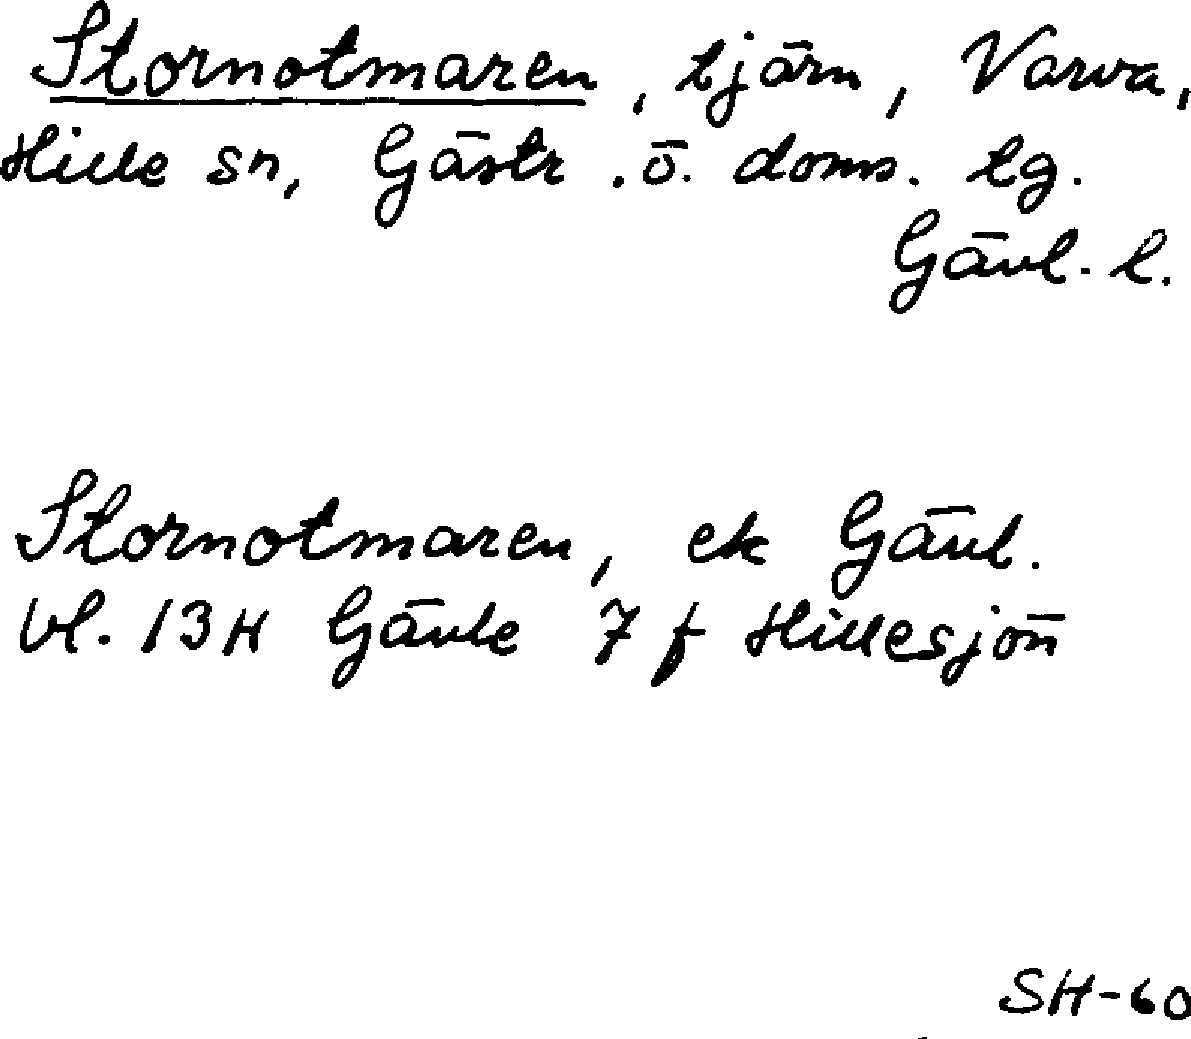 Stornotmaren, tjärn, Varva,
Hille sn, Gästr. ö. doms. tg.
Gävl. l.
Stornotmaren, ek Gävl.
bl. 13H Gävle 7 f Hillesjön
SH-60